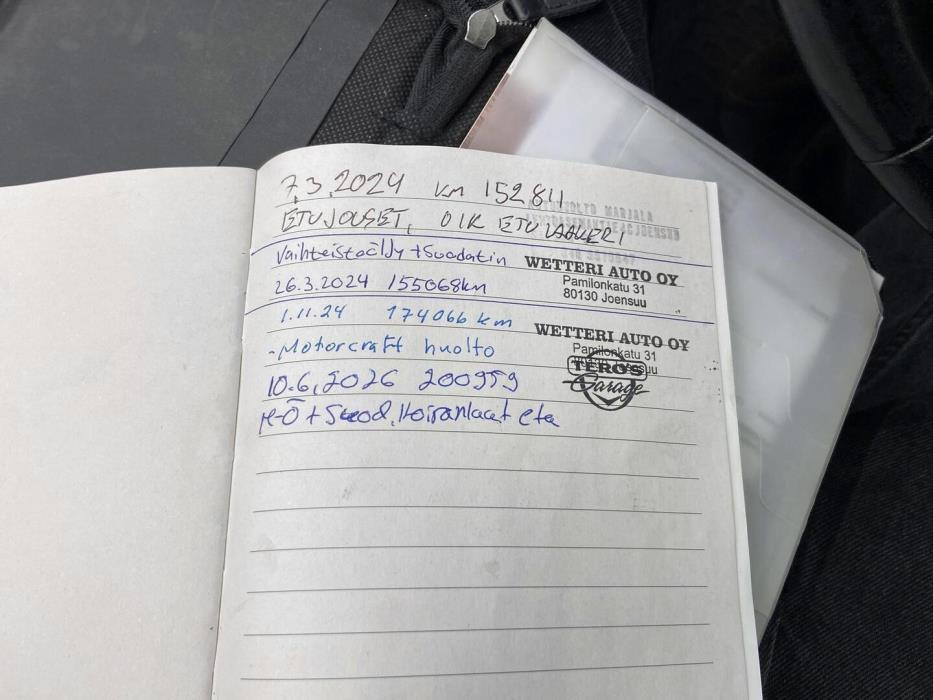 7.3.2024 km 152811
ETUJOUSET, OIK ETULAAKERI
MARJALA
Vaihteistoöljy + Suodatin
WETTERI AUTO OY
26.3.2024 155068km
Pamilonkatu 31
80130 Joensuu
1.11.24 174066 km
WETTERI AUTO OY
- Motorcraft huolto
Pamilonkatu 31
TERO'S
Garage
10.6.2026 200959
M-Ö + Suod, Koiranluut eta